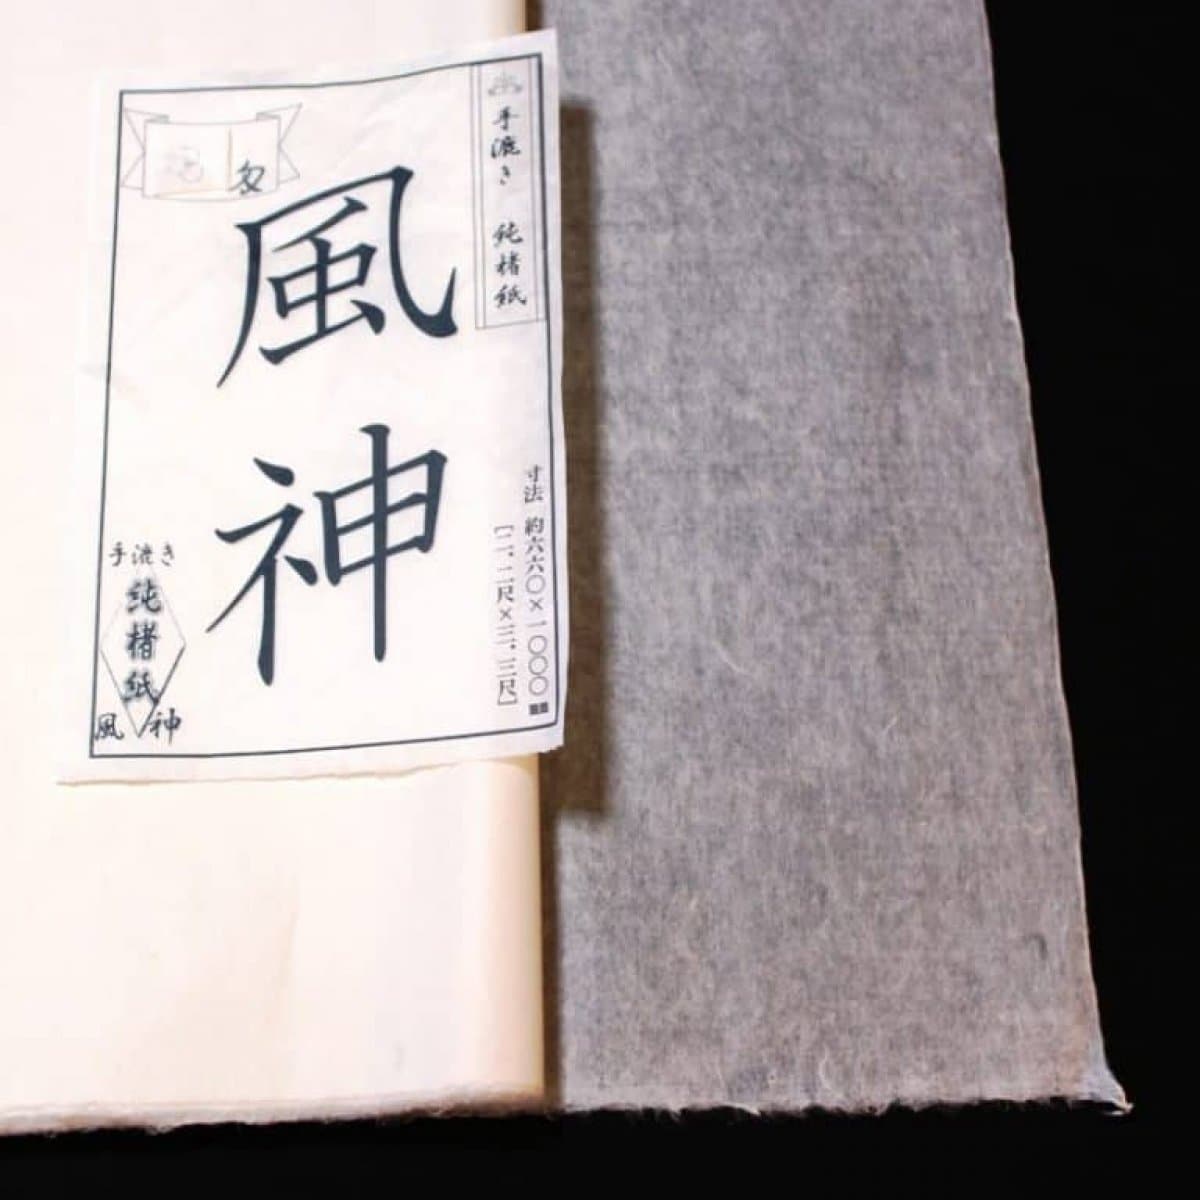 手漉き 純楮紙
風神
寸法 約六六〇×一〇〇〇㎜
［二.二尺×三.三尺］
手漉き
純楮紙
風神